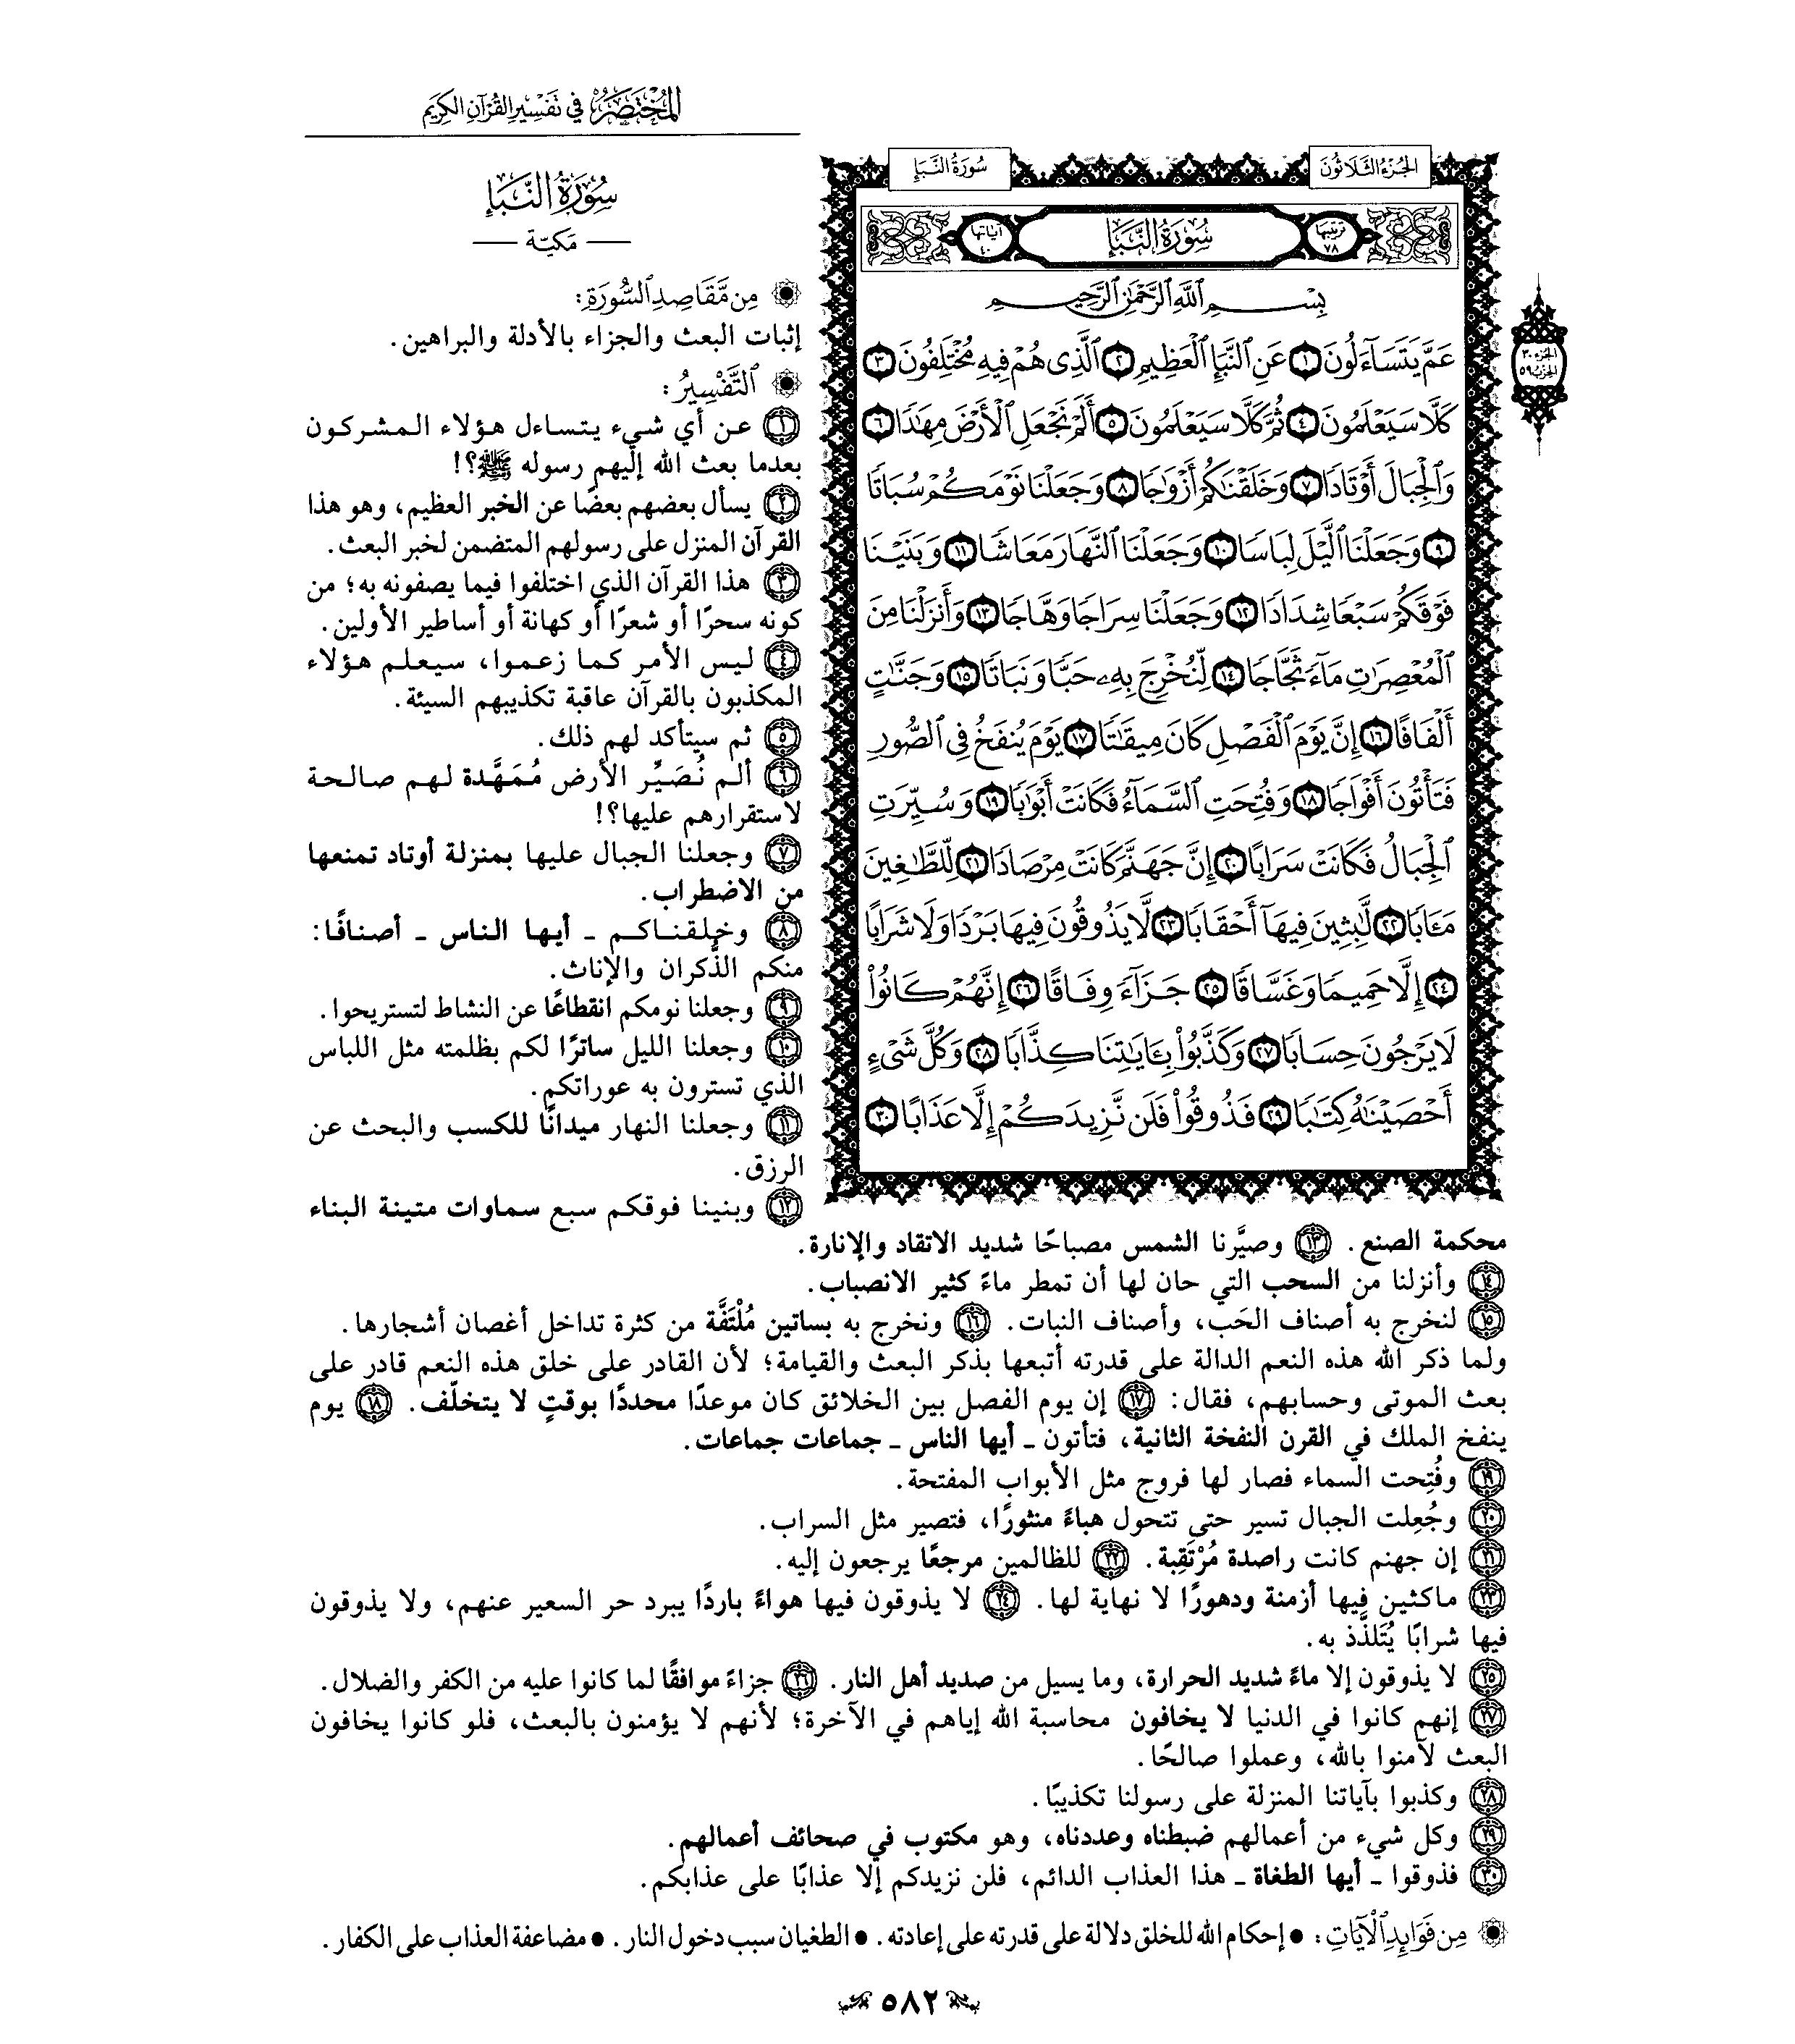 المختصر في تفسير القرآن الكريم
الجزء الثلاثون
سورة النبإ
ترتيبها
٧٨
سُورَةُ النَّبَإِ
آياتها
٤٠
بِسْمِ ٱللَّهِ ٱلرَّحْمَٰنِ ٱلرَّحِيمِ
عَمَّ يَتَسَآءَلُونَ ١ عَنِ ٱلنَّبَإِ ٱلْعَظِيمِ ٢ ٱلَّذِى هُمْ فِيهِ مُخْتَلِفُونَ ٣
كَلَّا سَيَعْلَمُونَ ٤ ثُمَّ كَلَّا سَيَعْلَمُونَ ٥ أَلَمْ نَجْعَلِ ٱلْأَرْضَ مِهَٰدًا ٦
وَٱلْجِبَالَ أَوْتَادًا ٧ وَخَلَقْنَٰكُمْ أَزْوَٰجًا ٨ وَجَعَلْنَا نَوْمَكُمْ سُبَاتًا
٩ وَجَعَلْنَا ٱلَّيْلَ لِبَاسًا ١٠ وَجَعَلْنَا ٱلنَّهَارَ مَعَاشًا ١١ وَبَنَيْنَا
فَوْقَكُمْ سَبْعًا شِدَادًا ١٢ وَجَعَلْنَا سِرَاجًا وَهَّاجًا ١٣ وَأَنزَلْنَا مِنَ
ٱلْمُعْصِرَٰتِ مَآءً ثَجَّاجًا ١٤ لِّنُخْرِجَ بِهِۦ حَبًّا وَنَبَاتًا ١٥ وَجَنَّٰتٍ
أَلْفَافًا ١٦ إِنَّ يَوْمَ ٱلْفَصْلِ كَانَ مِيقَٰتًا ١٧ يَوْمَ يُنفَخُ فِى ٱلصُّورِ
فَتَأْتُونَ أَفْوَاجًا ١٨ وَفُتِحَتِ ٱلسَّمَآءُ فَكَانَتْ أَبْوَٰبًا ١٩ وَسُيِّرَتِ
ٱلْجِبَالُ فَكَانَتْ سَرَابًا ٢٠ إِنَّ جَهَنَّمَ كَانَتْ مِرْصَادًا ٢١ لِّلطَّٰغِينَ
مَـَٔابًا ٢٢ لَّٰبِثِينَ فِيهَآ أَحْقَابًا ٢٣ لَّا يَذُوقُونَ فِيهَا بَرْدًا وَلَا شَرَابًا
٢٤ إِلَّا حَمِيمًا وَغَسَّاقًا ٢٥ جَزَآءً وِفَاقًا ٢٦ إِنَّهُمْ كَانُوا۟
لَا يَرْجُونَ حِسَابًا ٢٧ وَكَذَّبُوا۟ بِـَٔايَٰتِنَا كِذَّابًا ٢٨ وَكُلَّ شَىْءٍ
أَحْصَيْنَٰهُ كِتَٰبًا ٢٩ فَذُوقُوا۟ فَلَن نَّزِيدَكُمْ إِلَّا عَذَابًا ٣٠
الجزء ٣٠
الحزب ٥٩
سورة النبإ
— مكية —
من مقاصد السورة:
إثبات البعث والجزاء بالأدلة والبراهين.
التفسير:
١ عن أي شيء يتساءل هؤلاء المشركون
بعدما بعث الله إليهم رسوله ﷺ؟!
٢ يسأل بعضهم بعضًا عن الخبر العظيم، وهو هذا
القرآن المنزل على رسولهم المتضمن لخبر البعث.
٣ هذا القرآن الذي اختلفوا فيما يصفونه به؛ من
كونه سحرًا أو شعرًا أو كهانة أو أساطير الأولين.
٤ ليس الأمر كما زعموا، سيعلم هؤلاء
المكذبون بالقرآن عاقبة تكذيبهم السيئة.
٥ ثم سيتأكد لهم ذلك.
٦ ألم نُصَيِّر الأرض مُمَهَّدة لهم صالحة
لاستقرارهم عليها؟!
٧ وجعلنا الجبال عليها بمنزلة أوتاد تمنعها
من الاضطراب.
٨ وخلقناكم ـ أيها الناس ـ أصنافًا:
منكم الذُّكران والإناث.
٩ وجعلنا نومكم انقطاعًا عن النشاط لتستريحوا.
١٠ وجعلنا الليل ساترًا لكم بظلمته مثل اللباس
الذي تسترون به عوراتكم.
١١ وجعلنا النهار ميدانًا للكسب والبحث عن
الرزق.
١٢ وبنينا فوقكم سبع سماوات متينة البناء
محكمة الصنع. ١٣ وصيَّرنا الشمس مصباحًا شديد الاتقاد والإنارة.
١٤ وأنزلنا من السحب التي حان لها أن تمطر ماءً كثير الانصباب.
١٥ لنخرج به أصناف الحَب، وأصناف النبات. ١٦ ونخرج به بساتين مُلْتَفَّة من كثرة تداخل أغصان أشجارها.
ولما ذكر الله هذه النعم الدالة على قدرته أتبعها بذكر البعث والقيامة؛ لأن القادر على خلق هذه النعم قادر على
بعث الموتى وحسابهم، فقال: ١٧ إن يوم الفصل بين الخلائق كان موعدًا محددًا بوقتٍ لا يتخلّف. ١٨ يوم
ينفخ الملك في القرن النفخة الثانية، فتأتون ـ أيها الناس ـ جماعات جماعات.
١٩ وفُتِحت السماء فصار لها فروج مثل الأبواب المفتحة.
٢٠ وجُعِلت الجبال تسير حتى تتحول هباءً منثورًا، فتصير مثل السراب.
٢١ إن جهنم كانت راصدة مُرْتَقِبة. ٢٢ للظالمين مرجعًا يرجعون إليه.
٢٣ ماكثين فيها أزمنة ودهورًا لا نهاية لها. ٢٤ لا يذوقون فيها هواءً باردًا يبرد حر السعير عنهم، ولا يذوقون
فيها شرابًا يُتَلذَّذ به.
٢٥ لا يذوقون إلا ماءً شديد الحرارة، وما يسيل من صديد أهل النار. ٢٦ جزاءً موافقًا لما كانوا عليه من الكفر والضلال.
٢٧ إنهم كانوا في الدنيا لا يخافون محاسبة الله إياهم في الآخرة؛ لأنهم لا يؤمنون بالبعث، فلو كانوا يخافون
البعث لآمنوا بالله، وعملوا صالحًا.
٢٨ وكذبوا بآياتنا المنزلة على رسولنا تكذيبًا.
٢٩ وكل شيء من أعمالهم ضبطناه وعددناه، وهو مكتوب في صحائف أعمالهم.
٣٠ فذوقوا ـ أيها الطغاة ـ هذا العذاب الدائم، فلن نزيدكم إلا عذابًا على عذابكم.
من فوائد الآيات: • إحكام الله للخلق دلالة على قدرته على إعادته. • الطغيان سبب دخول النار. • مضاعفة العذاب على الكفار.
٥٨٢